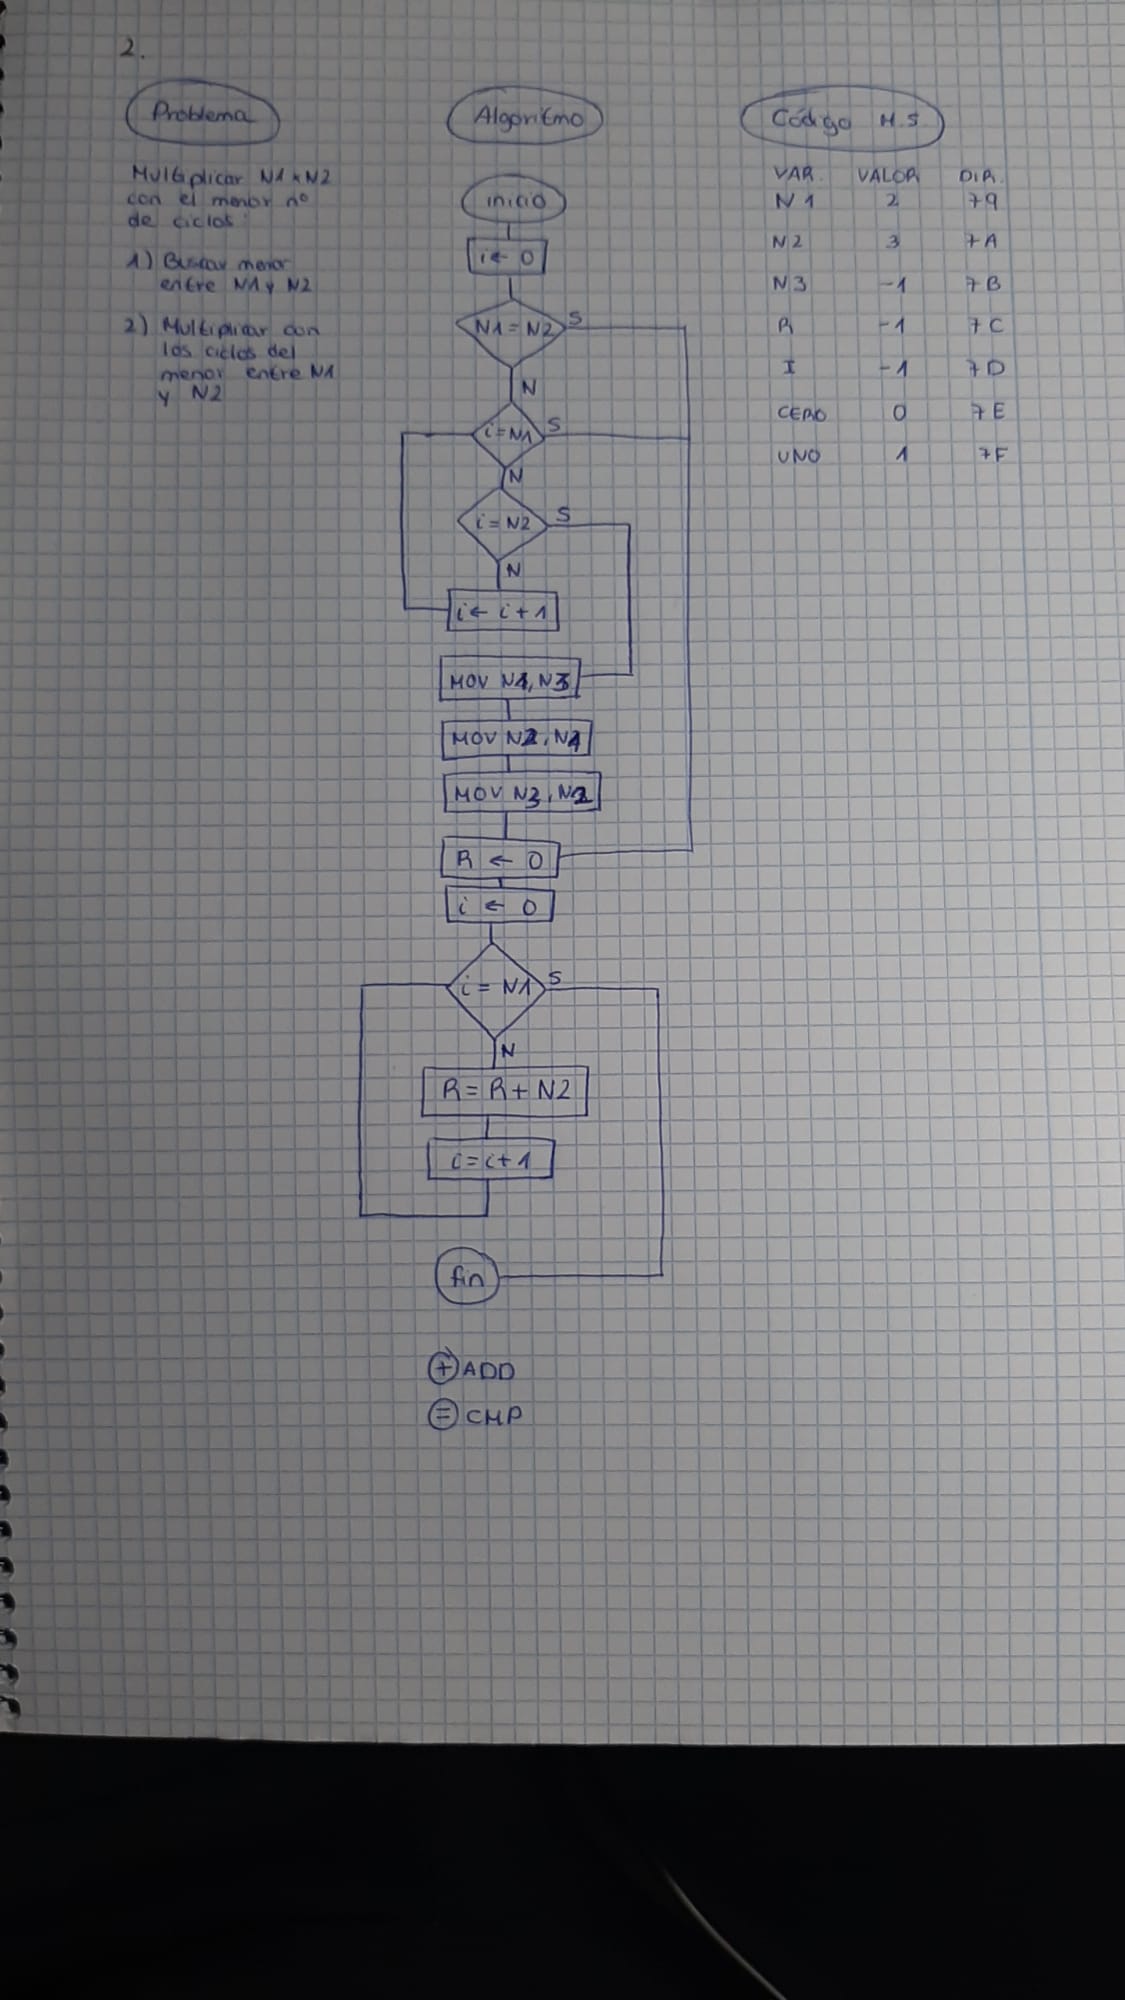 2.
Problema
Multiplicar N1 x N2
con el menor nº
de ciclos:
1) Buscar menor
entre N1 y N2
2) Multiplicar con
los ciclos del
menor entre N1
y N2
Algoritmo
inicio
i ← 0
N1 = N2
S
N
i = N1
S
N
i = N2
S
N
i ← i + 1
MOV N1, N3
MOV N2, N1
MOV N3, N2
R ← 0
i ← 0
i = N1
S
N
R = R + N2
i = i + 1
fin
+ ADD
= CMP
Código M.S
VAR. VALOR DIR.
N1 2 79
N2 3 7A
N3 -1 7B
R -1 7C
I -1 7D
CERO 0 7E
UNO 1 7F